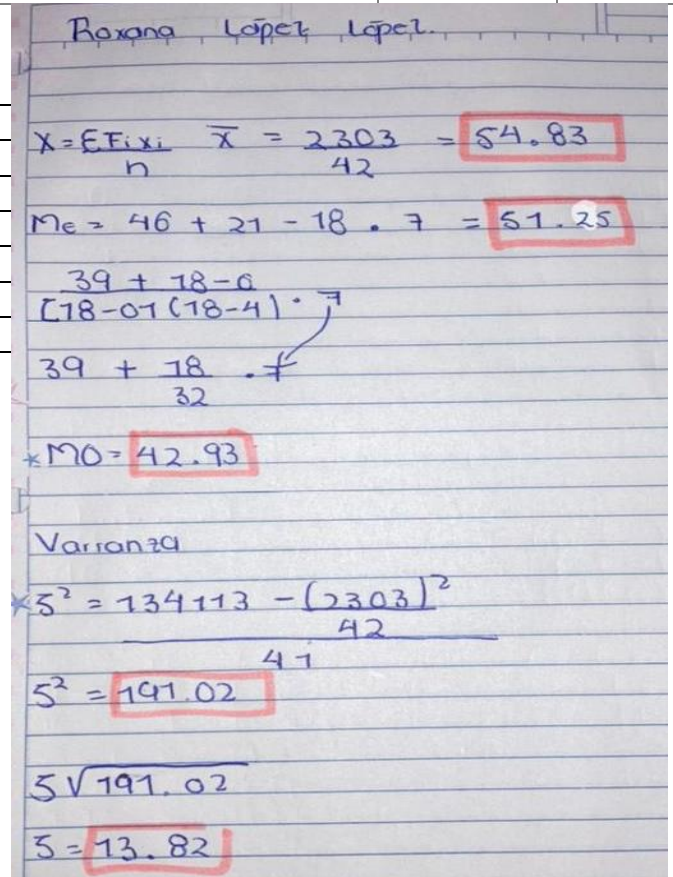 Roxana López López.
X = ΣFixi / n   x̄ = 2303 / 42 = 54.83
Me = 46 + 21 - 18 . 7 = 51.25
39 + 18-0
[18-01(18-4) . 7
39 + 18 / 32 . 7
*MO= 42.93
Varianza
*S² = 134113 - (2303)²
42
41
S² = 191.02
S√191.02
S = 13.82